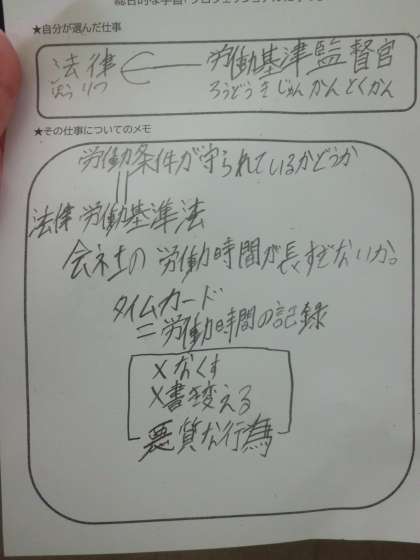 ★自分が選んだ仕事
法律 ← 労働基準監督官
ほうりつ ろうどうきじゅんかんとくかん
★その仕事についてのメモ
労働条件が守られているかどうか
法律 労働基準法
会社の労働時間が長すぎないか。
タイムカード
=労働時間の記録
×なくす
×書き変える
悪質な行為